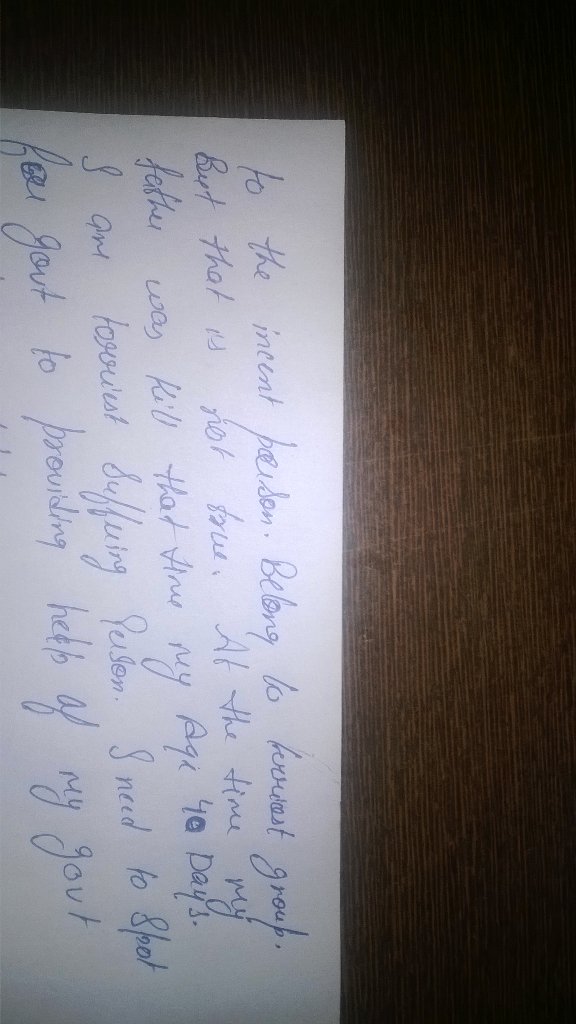 to the incent person. Belong to terrriest group.
But that is not true. At the time my
fathe was kill that time my Age 40 Days.
I am torriest suffuing Person. I need to Spot
for govt to providing help of my govt